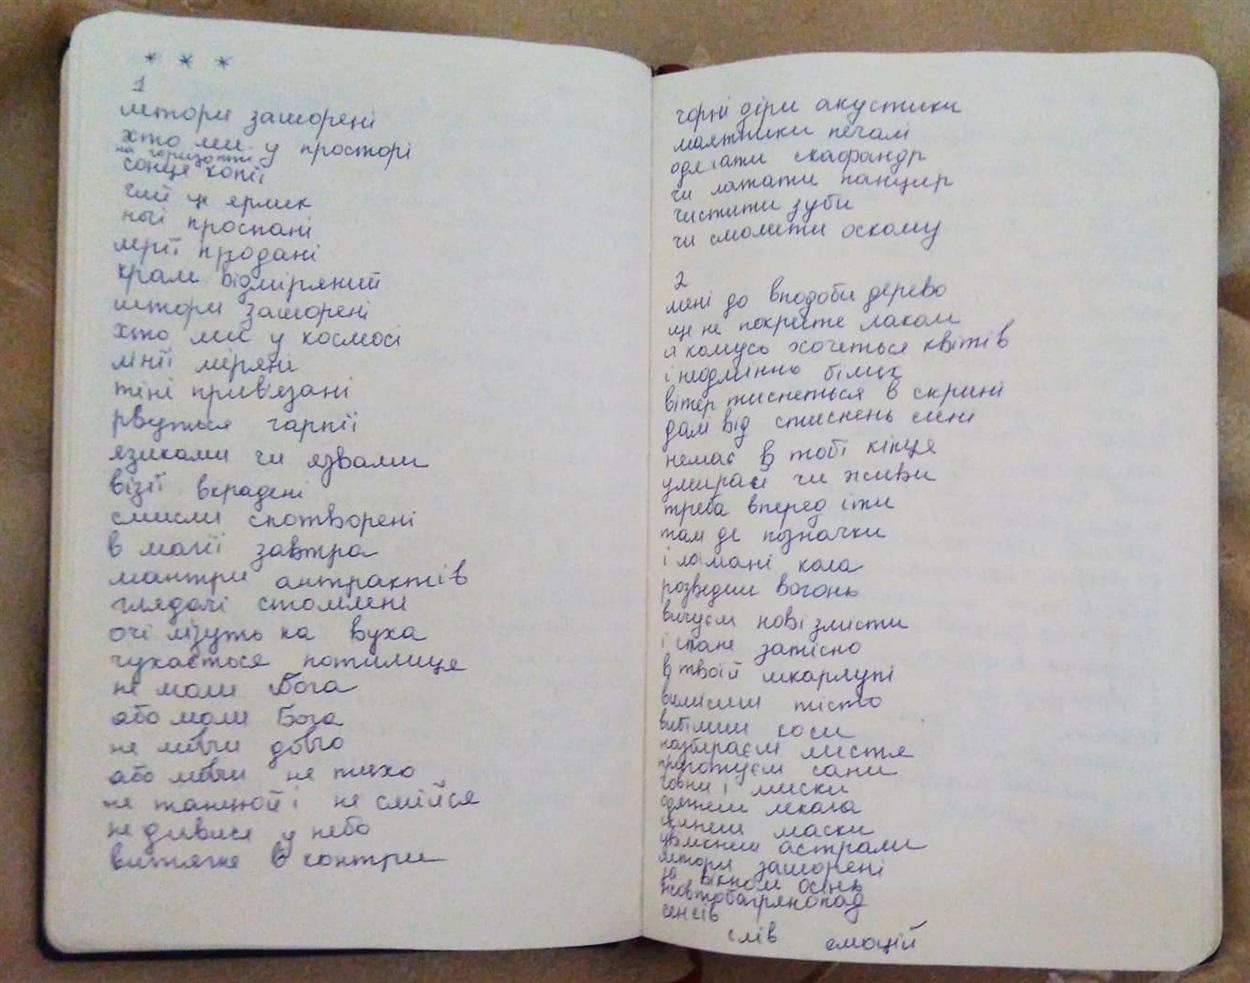 * * *
1
штори зашорені
хто ми у просторі
на горизонті
сонця копії
чий це ярлик
ночі проспані
мрії продані
крам відміряний
штори зашорені
хто ми у космосі
лінії міряні
тіні прив'язані
рвуться гарпії
язиками чи язвами
візії вкрадені
смисли спотворені
в магії завтра
мантри антрактів
глядачі стомлені
очі лізуть на вуха
чухається потилиця
не моли Бога
або моли Бога
не мовчи довго
або мовчи не тихо
не танцюй і не смійся
не дивися у небо
витягне в контри
чорні діри акустики
маятники печалі
одягати скафандр
чи латати панцир
чистити зуби
чи смолити оскому
2
мені до вподоби дерево
ще не покрите лаком
а комусь хочеться квітів
і неодмінно білих
вітер тиснеться в скрині
далі від стиснень сині
немає в тобі кінця
умирай чи живи
треба вперед іти
там де позначки
і ламані кола
розведем вогонь
вичуєм нові змісти
і стане затісно
в твоїй шкарлупі
вимісим тісто
вибілим коси
назбираєм листя
приготуєм сани
човни і миски
одягнем лекала
маски
астрами
штори зашорені
за вікном осінь
жовтобагрянопад
сенсів
слів емоцій